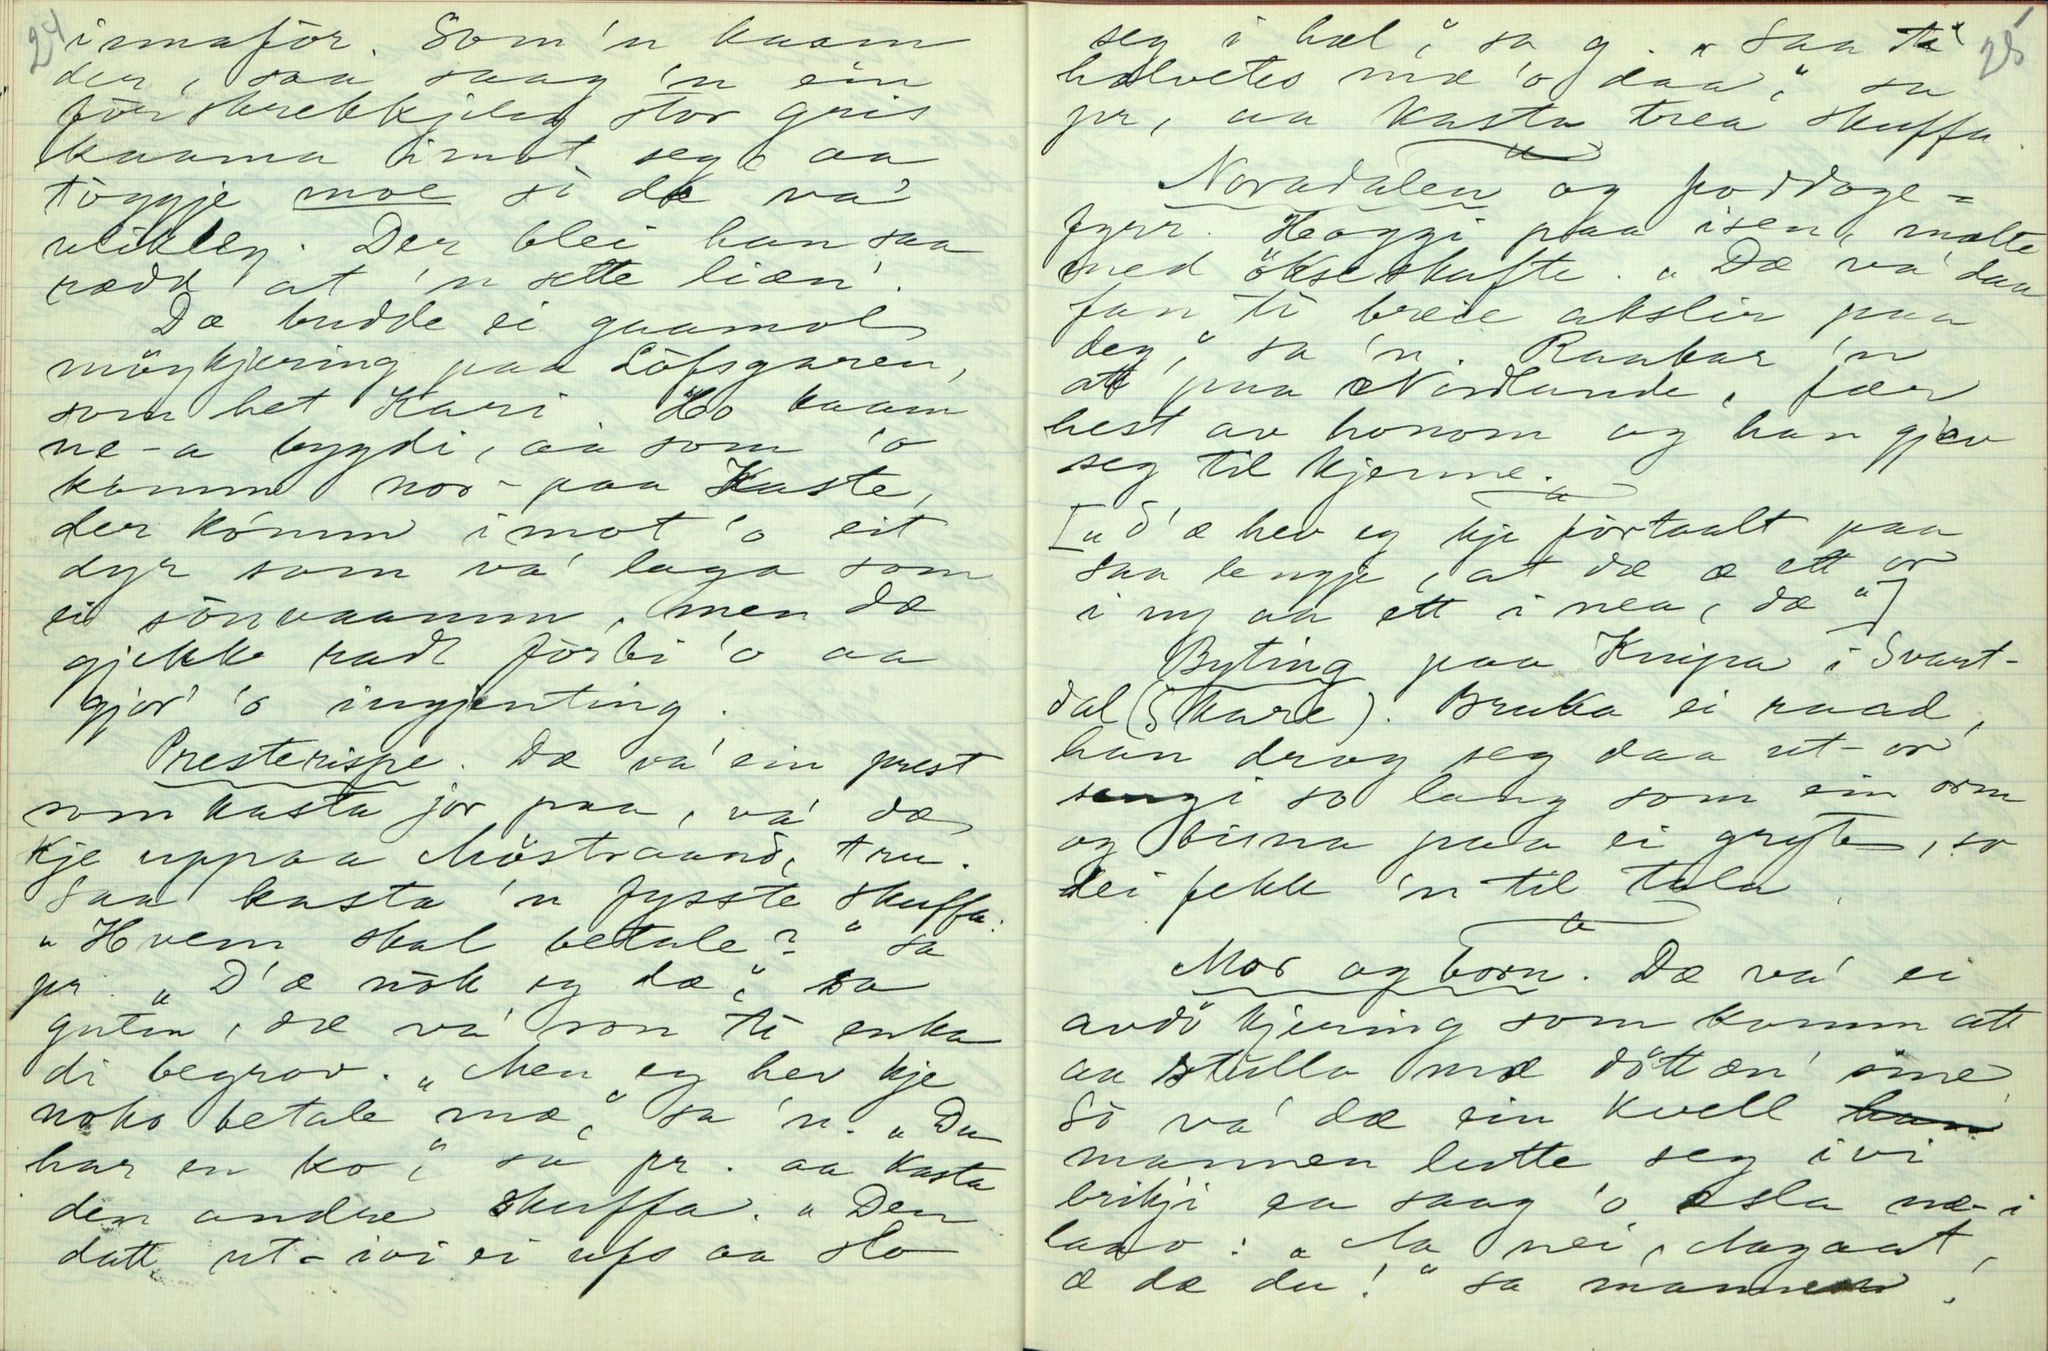 24
irmaför. Som 'n kaam
der, saa saag 'n ein
förskrekkjeleg stor gris
kaama imot seg aa
töggje moe so dæ va'
ulikleg. Der blei han saa
rædd at 'n sette liæn'.
Dæ budde ei gaamol
möykjering paa Löfsgaren,
som het Kari Ho kaam
ne-a bygdi, aa som 'o
kömm nor-paa Kaste,
der kömm imot 'o eit
dyr som va' laga som
ei sönvaamm, men dæ
gjekk radt förbi 'o aa
gjor' 'o ingjenting.
Presterispe. Dæ va' ein prest
som kasta jor paa, va' dæ
kje uppaa Möstraand, tru.
Saa kasta 'n fysste skuffa.
„Hvem skal betale?" sa
pr. „D'æ nök eg dæ," sa
guten, dæ va' son ti enka
di begrov. „Men eg hev kje
noko betale mæ," sa 'n. „Du
har en ko," sa pr. aa kasta
den andre skuffa. „Den
datt ut-ivi ei ufs aa slo
25
seg i hæl," sa g. „Saa te
hælvetes mæ 'o daa," sa
pr, aa kasta trea skuffa.
Noradalen og poddoge-
fyrr. Höggi paa isen, mælte
med ökseskafte. „Dæ va' daa
fan ti breie akslir paa
deg," sa 'n. Raakar 'n
att paa Nordlande, fær
hest av honom og han gjev
seg til kjenne.
[„D'æ hev eg kje förtaalt paa
saa lengje, at dæ æ ett or
i ny aa ett i nea, dæ"]
Byting paa Knipa i Svart-
dal (Skare). Bruka ei raad,
han drog seg daa ut-or
sengi so lang som ein orm
og bisna paa ei gryte, so
dei fekk 'n til tala.
Mor og born. Dæ va' ei
avdö kjering som komm att
aa stulla mæ döttæn' sine
So va' dæ ein kvell han
mannen lutte seg ivi
brikji aa saag 'o asla næ-i
laav: „Aa nei, Magaat,
æ dæ du!" sa mannen.